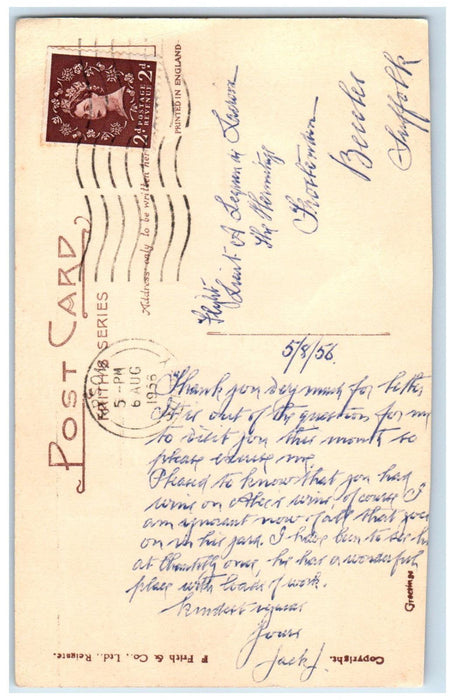 POST CARD
FRITH'S SERIES
Address only to be written here
PRINTED IN ENGLAND
2D POSTAGE REVENUE 2D
EPSOM
5-PM
6 AUG
1956
Flight
Lieut A
The Hermitage
Beccles
Suffolk
5/8/56.
Thank you very much for letter
It is out of the question for me
to visit you this month so
please excuse me.
Pleased to know that you had
wins on Alec's wins, of course I
am ignorant now of all that goes
on in his yard. I have been to see him
at Chantilly once, he has a wonderful
place with loads of work.
Kindest regards
Yours
Jack J.
Greetings
Copyright.
F Frith & Co., Ltd., Reigate.